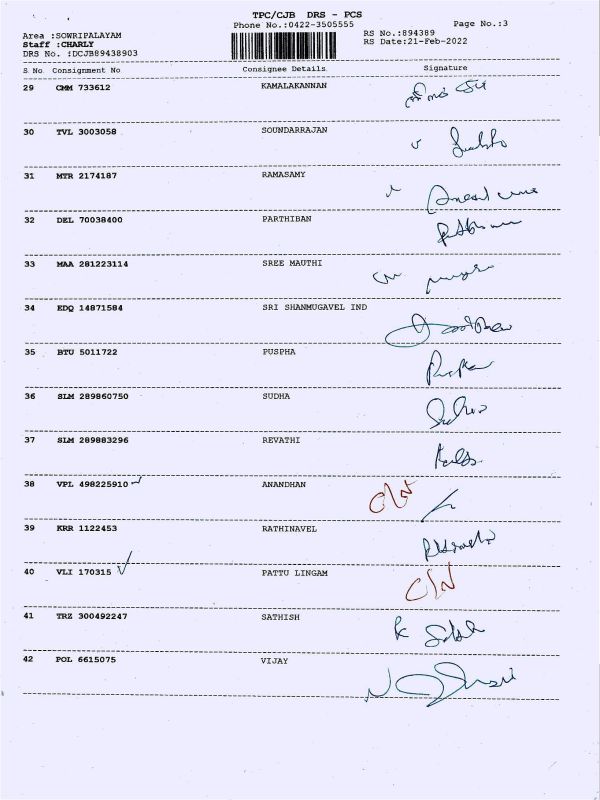 TPC/CJB DRS - PCS
Phone No.:0422-3505555 Page No.:3
Area :SOWRIPALAYAM RS No.:894389
Staff :CHARLY RS Date:21-Feb-2022
DRS No. :DCJB89438903
S No. Consignment No Consignee Details Signature
29 CMM 733612 KAMALAKANNAN
30 TVL 3003058 SOUNDARRAJAN
31 MTR 2174187 RAMASAMY
32 DEL 70038400 PARTHIBAN
33 MAA 281223114 SREE MAUTHI
34 EDQ 14871584 SRI SHANMUGAVEL IND
35 BTU 5011722 PUSPHA
36 SLM 289860750 SUDHA
37 SLM 289883296 REVATHI
38 VPL 498225910 ANANDHAN C/N
39 KRR 1122453 RATHINAVEL
40 VLI 170315 PATTU LINGAM C/N
41 TRZ 300492247 SATHISH
42 POL 6615075 VIJAY